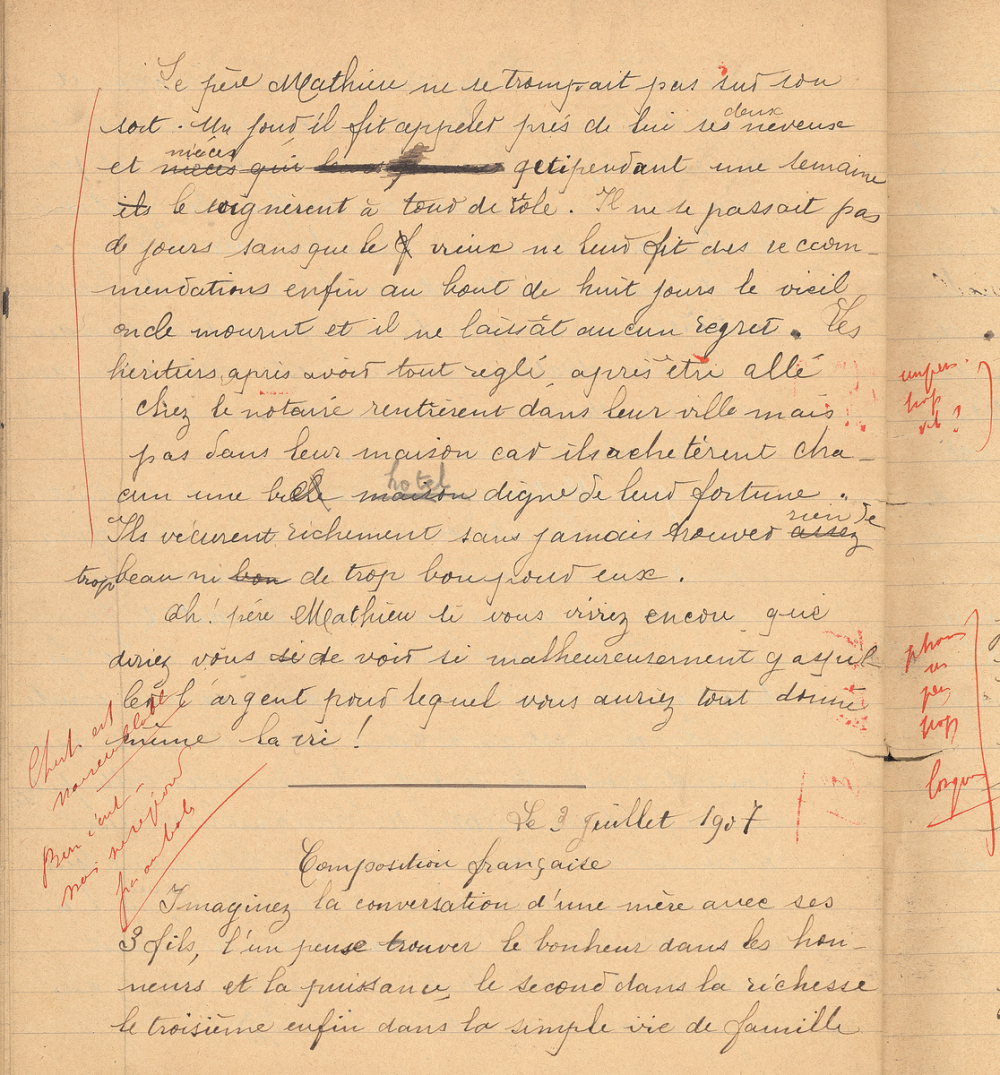 Le père Mathieu ne se trompait pas sur son
sort. Un jour il fit appeler près de lui ses deux neveux
et nièces qui pendant une semaine
ils le soignèrent à tour de rôle. Il ne se passait pas
de jours sans que le vieux ne leur fit des recom-
mendations enfin au bout de huit jours le vieil
oncle mourut et il ne laissât aucun regret. Les
héritiers après avoir tout réglé après être allé
chez le notaire rentrèrent dans leur ville mais
pas dans leur maison car ils achetèrent cha-
cun une belle maison hotel digne de leur fortune.
Ils vécurent richement sans jamais trouver assez rien de
trop beau ni bon de trop bon pour eux.
Ah! père Mathieu si vous viviez encore que
diriez vous si de voir si malheureusement gaspil-
ler l'argent pour lequel vous auriez tout donné
même la vie!
C'est
nais
Le 3 Juillet 1907
Composition française
Imaginez la conversation d'une mère avec ses
3 fils, l'un pense trouver le bonheur dans les hon-
neurs et la puissance, le second dans la richesse
le troisième enfin dans la simple vie de famille
un peu
trop
vite?
un
peu
trop
longue